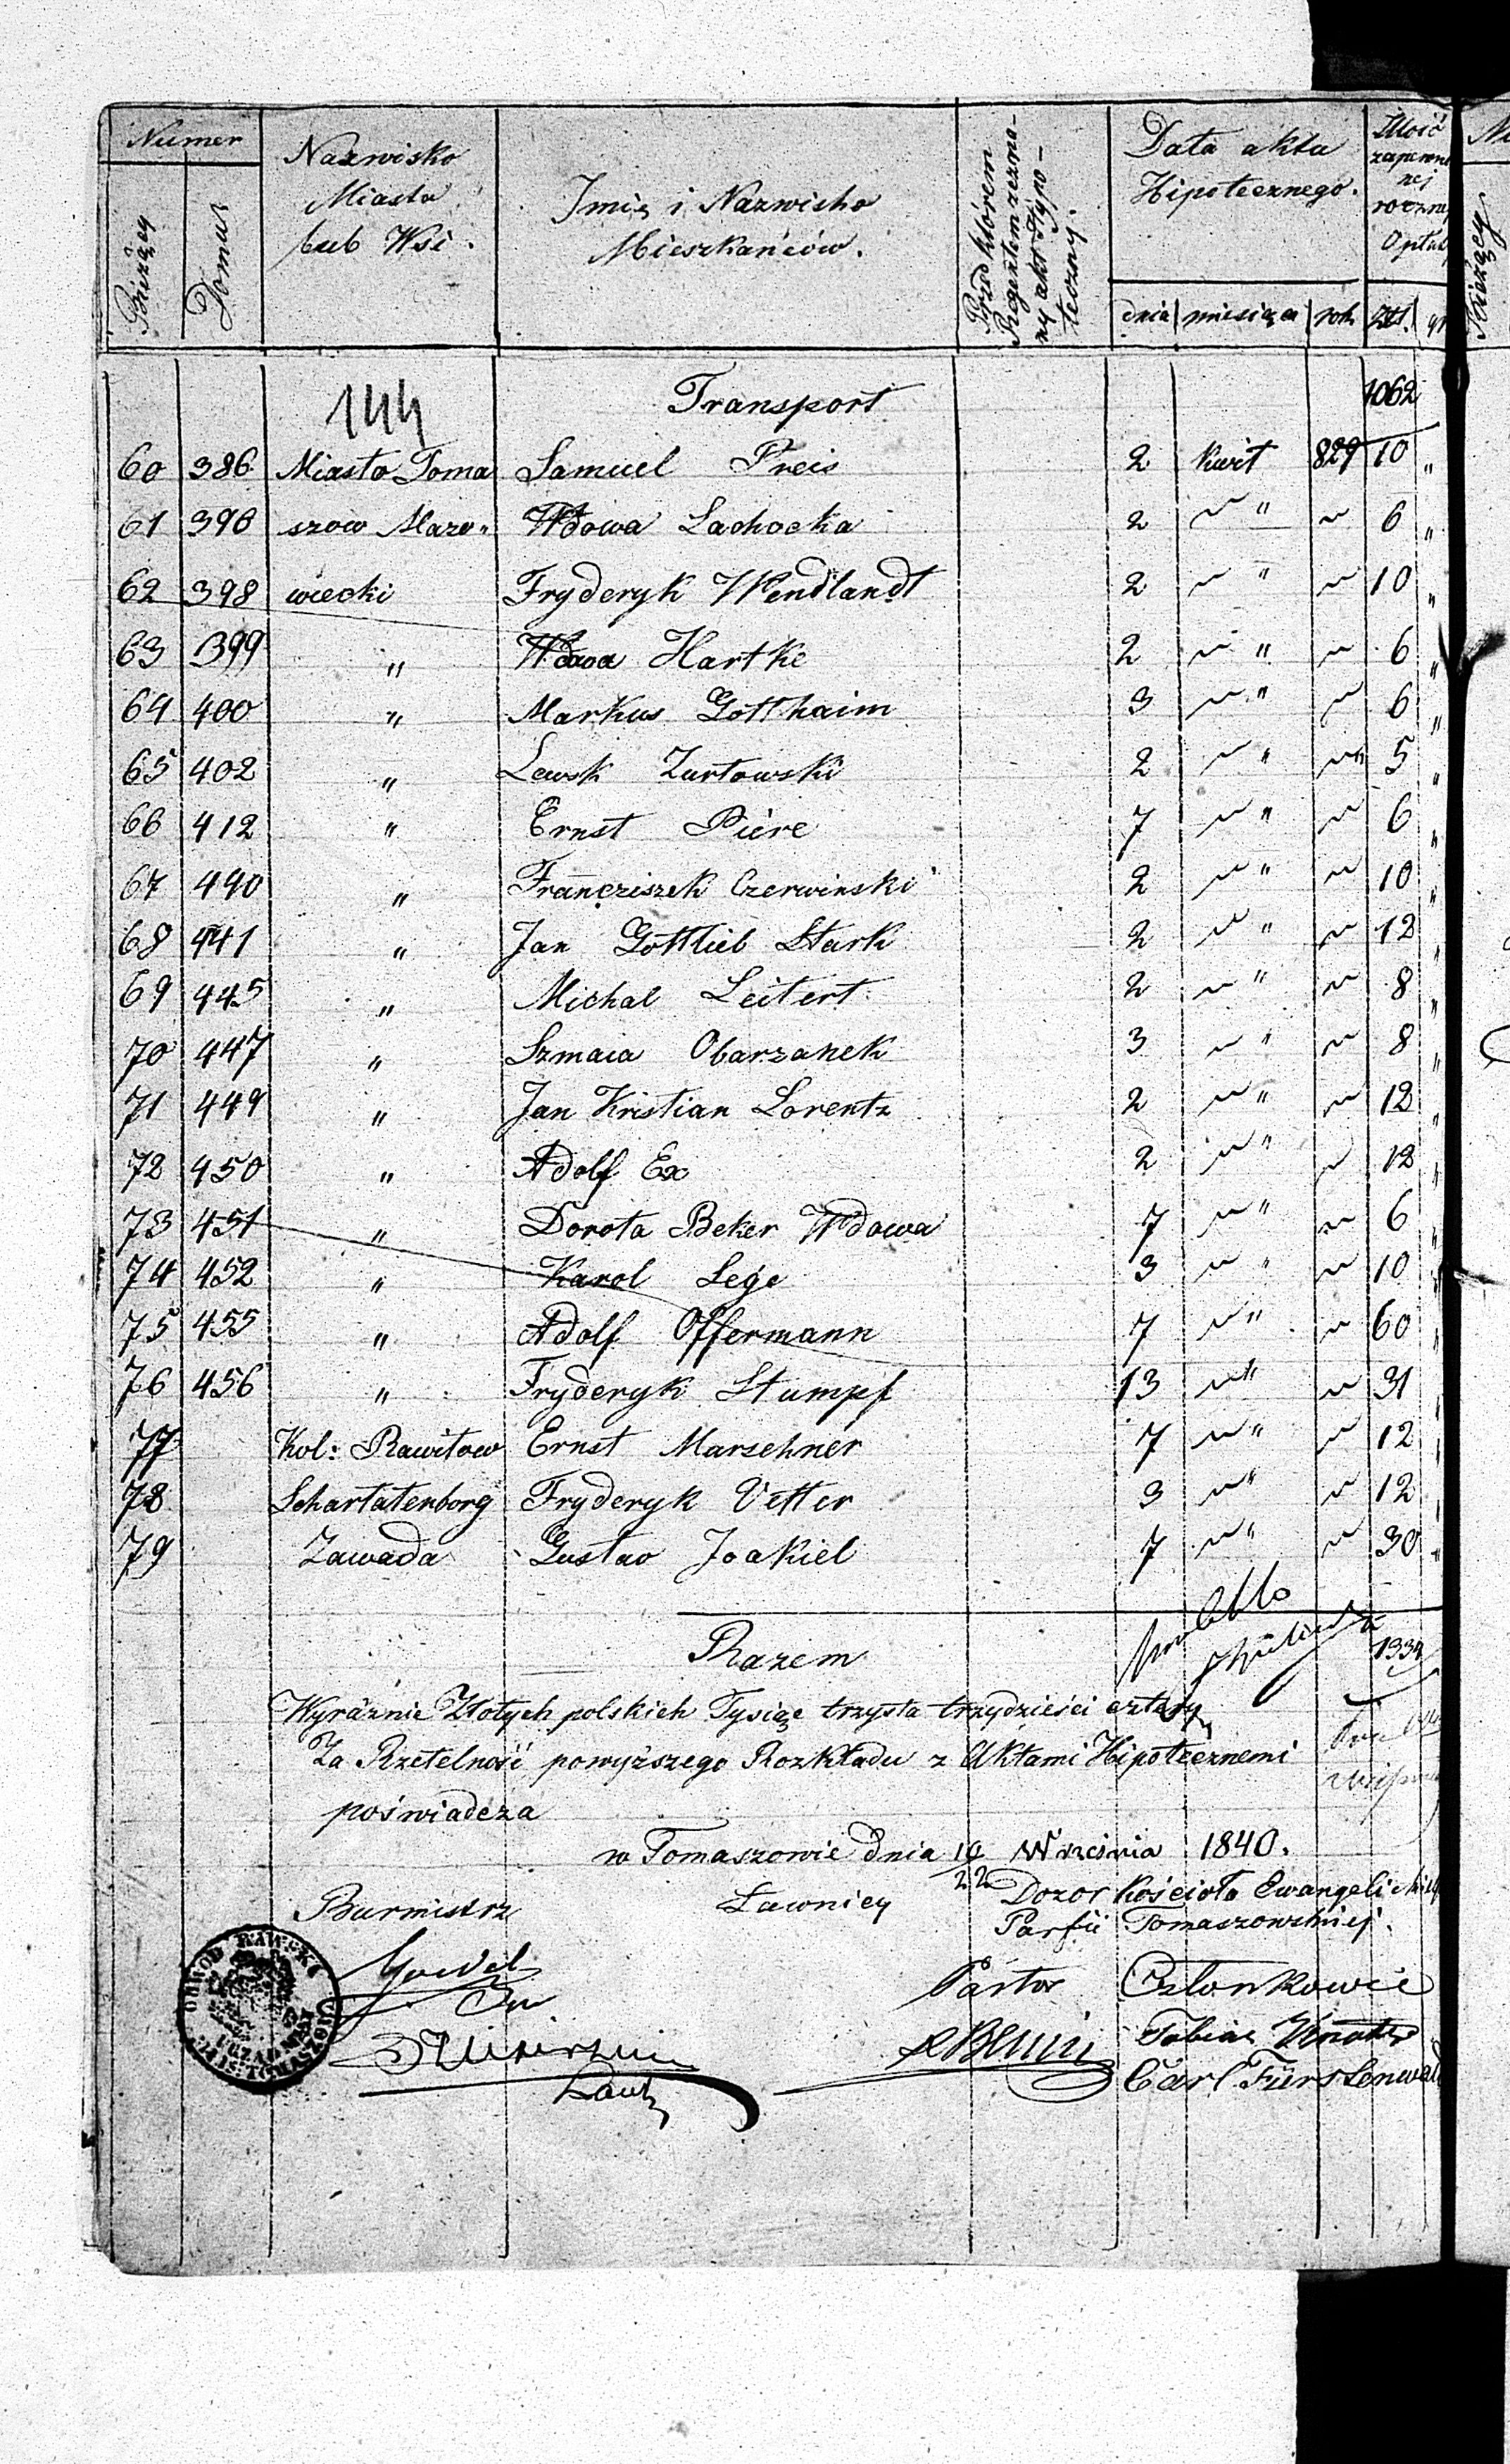 Numer
Bieżący
Domu
Nazwisko
Miasta
lub Wsi.
Imię i Nazwisko
Mieszkańców.
Przed którem
Regentem zezna-
ny akt Hypo-
teczny.
Data akta
Hipotecznego.
dnia miesiąca rok
Ilość
zapewnio
nej
roczną
Opłaty
Złt. gr
144
Transport 1062
60 386 Miasto Toma Samuel Preis 2 kwit 829 10 "
61 396 szow Mazo- Wdowa Lachocka 2 " 6 "
62 398 wiecki Fryderyk Wendlandt 2 " 10 "
63 399 " Wdowa Hartke 2 " 6 "
64 400 " Markus Gotthaim 3 " 6 "
65 402 " Lewsk Zurtowski 2 " 5 "
66 412 " Ernst Piere 7 " 6 "
67 440 " Franciszek Czerwinski 2 " 10 "
68 441 " Jan Gottlieb Stark 2 " 12 "
69 445 " Michal Leitert 2 " 8 "
70 447 " Szmaia Obarzanek 3 " 8 "
71 449 " Jan Kristian Lorentz 2 " 12 "
72 450 " Adolf Ex 2 " 12 "
73 451 " Dorota Beker Wdowa 7 " 6 "
74 452 " Karol Lege 3 " 10 "
75 455 " Adolf Offermann 7 " 60 "
76 456 " Fryderyk Stumpf 13 " 31 "
77 Kol: Rawitow Ernst Marschner 7 " 12 "
78 Schartatenborg Fryderyk Vetter 3 " 12 "
79 Zawada Gustav Joakiel 7 " 30 "
Razem 1334
Wyraźnie Złotych polskich Tysiąc trzysta trzydzieści cztery
Za Rzetelność powyższego Rozkładu z Aktami Hipotecznemi
poświadcza
w Tomaszowie dnia 10/22 Września 1840.
Burmistrz
Ławnicy
Dozor Kościoła Ewangelickiej
Parfii Tomaszowskiej.
Pastor
Członkowie
Tobias
Carl Fürstenwald